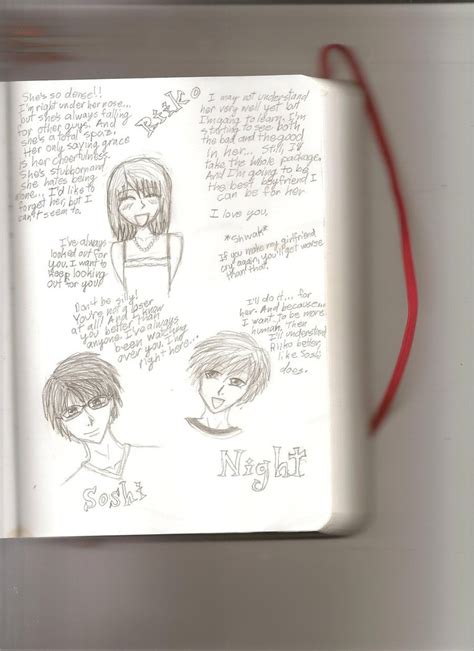 She's so dense!!
I'm right under her nose...
but she's always falling
for other guys. And
she's a total spaz.
Her only saving grace
is her cheerfulness.
She's stubborn and
she hates being
alone... I'd like to
forget her, but I
can't seem to.
Riiko
I may not understand
her very well yet but
I'm gang to learn. I'm
starting to see both
the bad and the good
in her... Still, I'll
take the whole package.
And I'm going to be
the best boyfriend I
can be for her
I love you.
I've always
looked out for
you. I want to
keep looking
out for you.
*Shwak*
If you make my girlfriend
cry again, you'll get worse
than that.
Don't be silly!
You're not a loser
at all! And I know
you better than
anyone. I've always
been watching
over you. I'm
right here...
I'll do it... for
her. And because...
I want to be more
human. Then
I'll understand
Riiko better,
like Soshi
does.
Soshi
Night